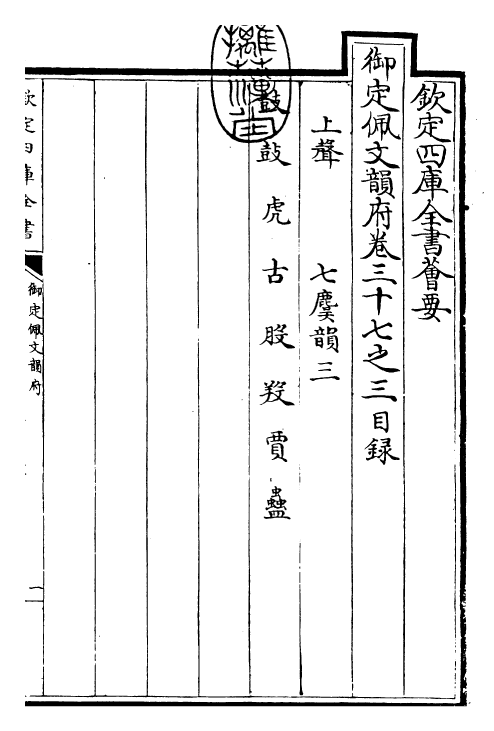 欽定四庫全書薈要
御定佩文韻府卷三十七之三目録
上聲 七麌韻三
鼓 鼔 虎 古 股 羖 賈 蠱
欽定四庫全書
御定佩文韻府
一